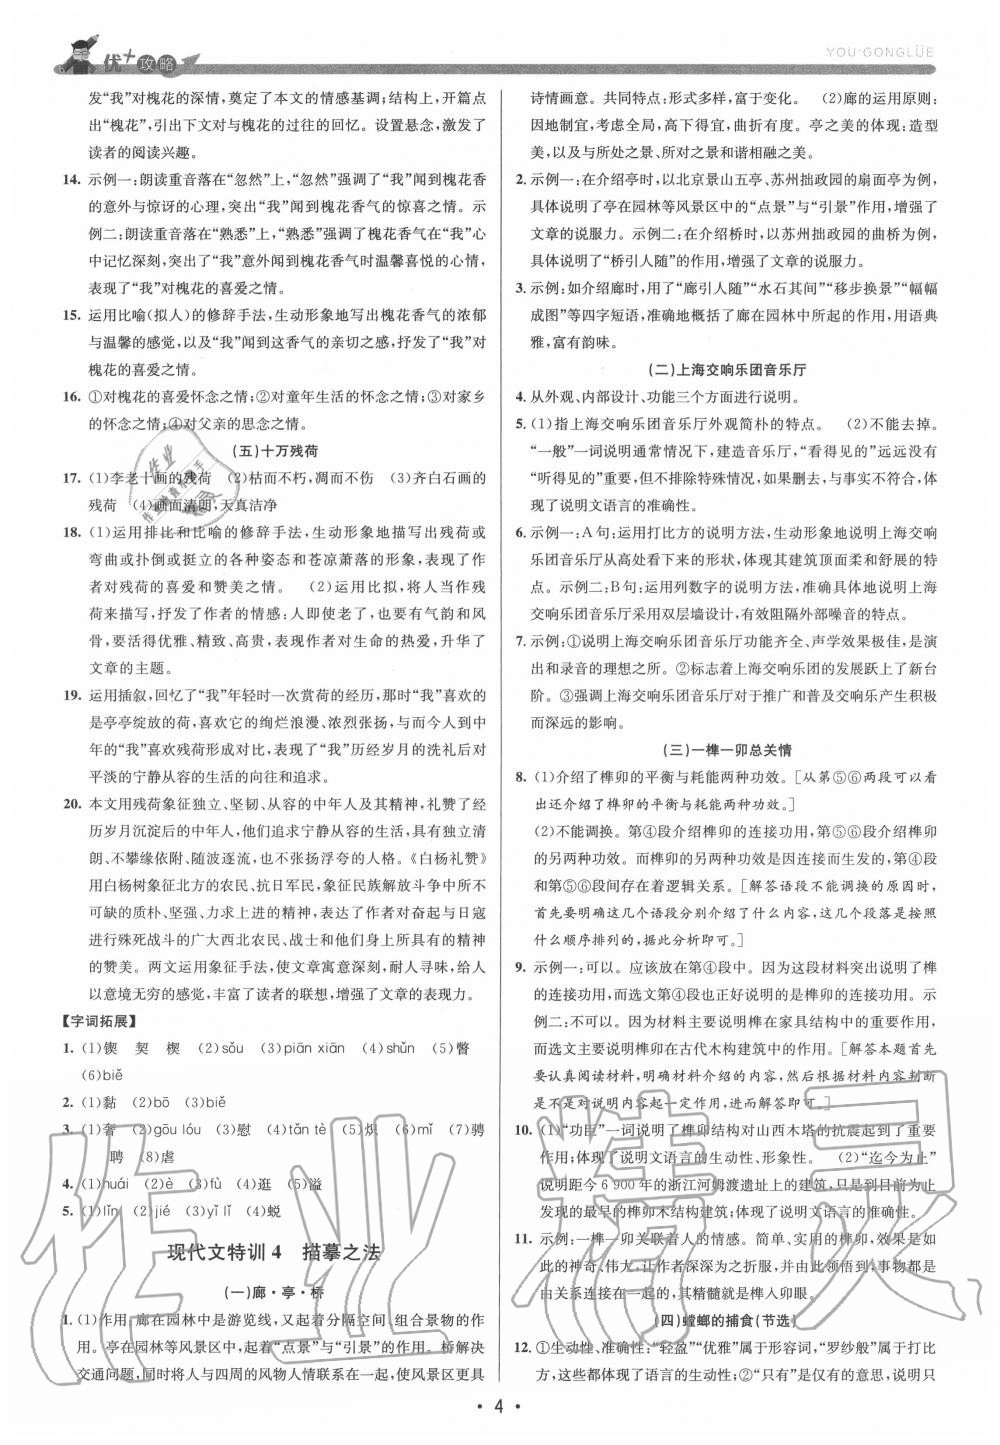 优+攻略
YOU·GONGLÜE
发“我”对槐花的深情，奠定了本文的情感基调；结构上，开篇点
出“槐花”，引出下文对与槐花的过往的回忆。设置悬念，激发了
读者的阅读兴趣。
14. 示例一：朗读重音落在“忽然”上，“忽然”强调了“我”闻到槐花香
的意外与惊讶的心理，突出“我”闻到槐花香气的惊喜之情。示
例二：朗读重音落在“熟悉”上，“熟悉”强调了槐花香气在“我”心
中记忆深刻，突出“我”意外闻到槐花香气时温馨喜悦的心情，
表现了“我”对槐花的喜爱之情。
15. 运用比喻(拟人)的修辞手法，生动形象地写出槐花香气的浓郁
与温馨的感觉，以及“我”见到这香气的亲切之感，抒发了“我”对
槐花的喜爱之情。
16. ①对槐花的喜爱怀念之情；②对童年生活的怀念之情；③对家乡
的怀念之情；④对父亲的思念之情。
(五)十万残荷
17. (1)李老十画的残荷 (2)枯而不朽，凋而不伤 (3)齐白石画的
残荷 (4)画面清朗，天真洁净
18. (1)运用排比和比喻的修辞手法，生动形象地描写出残荷或
弯曲或扑倒或挺立的各种姿态和苍凉萧落的形象，表现了作
者对残荷的喜爱和赞美之情。 (2)运用比拟，将人当作残
荷来描写，抒发了作者的情感：人即使老了，也要有气韵和风
骨，要活得优雅、精致、高贵，表现作者对生命的热爱，升华了
文章的主题。
19. 运用插叙，回忆了“我”年轻时一次赏荷的经历，那时“我”喜欢的
是亭亭绽放的荷，喜欢它的绚烂浪漫、浓烈张扬，与而今人到中
年的“我”喜欢残荷形成对比，表现了“我”历经岁月的洗礼后对
平淡的宁静从容的生活的向往和追求。
20. 本文用残荷象征独立、坚韧、从容的中年人及其精神，礼赞了经
历岁月沉淀后的中年人，他们追求宁静从容的生活，具有独立清
朗、不攀缘依附、随波逐流，也不张扬浮夸的人格。《白杨礼赞》
用白杨树象征北方的农民、抗日军民，象征民族解放斗争中所不
可缺的质朴、坚强、力求上进的精神，表达了作者对奋起与日寇
进行殊死战斗的广大西北农民、战士和他们身上所具有的精神
的赞美。两文运用象征手法，使文章寓意深刻，耐人寻味，给人
以意境无穷的感觉，丰富了读者的联想，增强了文章的表现力。
【字词拓展】
1. (1)锲 契 楔 (2)sǒu (3)piān xiān (4)shǔn (5)瞥
(6)biě
2. (1)黏 (2)bō (3)biě
3. (1)奢 (2)gōu lóu (3)慰 (4)tǎn tè (5)炽 (6)mǐ (7)骋
聘 (8)虐
4. (1)huái (2)è (3)fù (4)逛 (5)溢
5. (1)lǐn (2)jié (3)yǐ lǐ (4)蜕
现代文特训4 描摹之法
(一)廊·亭·桥
1. (1)作用：廊在园林中是游览线，又起着分隔空间、组合景物的作
用。亭在园林等风景区中，起着“点景”与“引景”的作用。桥解决
交通问题，同时将人与四周的风物人情联系在一起，使风景区更具
诗情画意。共同特点：形式多样，富于变化。 (2)廊的运用原则：
因地制宜，考虑全局，高下得宜，曲折有度。亭之美的体现：造型
美，以及与所处之景、所对之景和谐相融之美。
2. 示例一：在介绍亭时，以北京景山五亭、苏州拙政园的扇面亭为例，
具体说明了亭在园林等风景区中的“点景”与“引景”作用，增强了
文章的说服力。示例二：在介绍桥时，以苏州拙政园的曲桥为例，
具体说明了“桥引人随”的作用，增强了文章的说服力。
3. 示例：如介绍廊时，用了“廊引人随”“水石其间”“移步换景”“幅幅
成图”等四字短语，准确地概括了廊在园林中所起的作用，用语典
雅，富有韵味。
(二)上海交响乐团音乐厅
4. 从外观、内部设计、功能三个方面进行说明。
5. (1)指上海交响乐团音乐厅外观简朴的特点。 (2)不能去掉。
“一般”一词说明通常情况下，建造音乐厅，“看得见的”没有
“听得见的”重要，但不排除特殊情况，如果删去，与事实不符，体
现了说明文语言的准确性。
6. 示例一：A句：运用打比方的说明方法，生动形象地说明上海交响
乐团音乐厅从高处看下来的形状，体现其建筑顶面柔和舒展的特
点。示例二：B句：运用列数字的说明方法，准确具体地说明上海
交响乐团音乐厅采用双层墙设计，有效阻隔外部噪音的特点。
7. 示例：①说明上海交响乐团音乐厅功能齐全、声学效果极佳，是演
出和录音的理想之所。②标志着上海交响乐团的发展跃上了新台
阶。③强调上海交响乐团音乐厅对于推广和普及交响乐产生积极
而深远的影响。
(三)一榫一卯总关情
8. (1)介绍了榫卯的平衡与耗能两种功效。[从第⑤⑥两段可以看
出还介绍了榫卯的平衡与耗能两种功效。]
(2)不能调换。第④段介绍榫卯的连接功用，第⑤⑥段介绍榫卯
的另两种功效。而榫卯的另两种功效是因连接而生发的，第④段
和第⑤⑥段间存在着逻辑关系。[解答语段不能调换的原因时，
首先要明确这几个语段分别介绍了什么内容，这几个段落是按照
什么顺序排列的，据此分析即可。]
9. 示例一：可以。应该放在第④段中。因为这段材料突出说明了榫
的连接功用，而选文第④段也正好说明的是榫卯的连接功用。示
例二：不可以。因为材料主要说明了榫在家具结构中的重要作用，
而选文主要说明榫卯在古代木构建筑中的作用。[解答本题首先
要认真阅读材料，明确材料介绍的内容，然后根据相关内容说明
是不是对说明内容起一定作用，进而解答即可。]
10. (1)“功臣”一词说明了榫卯结构对山西木塔的抗震起到了重要
作用；体现了说明文语言的生动性、形象性。 (2)“迄今为止”
说明距今6 900年的浙江河姆渡遗址上的建筑，只是到目前为止
发现的最早的榫卯木构建筑；体现了说明文语言的准确性。
11. 示例：一榫一卯关联着人的情感。简单、实用的榫卯，效果是如
此的神奇、伟大，让作者深深为之折服，并由此领悟到：事物都是
由关系连接在一起的，其精髓就是榫入卯眼。
(四)螳螂的捕食(节选)
12. ①生动性、准确性：“轻盈”“优雅”属于形容词，“罗纱般”属于打比
方，这些都体现了语言的生动性；②“只有”是仅有的意思，说明只
· 4 ·
作业精灵